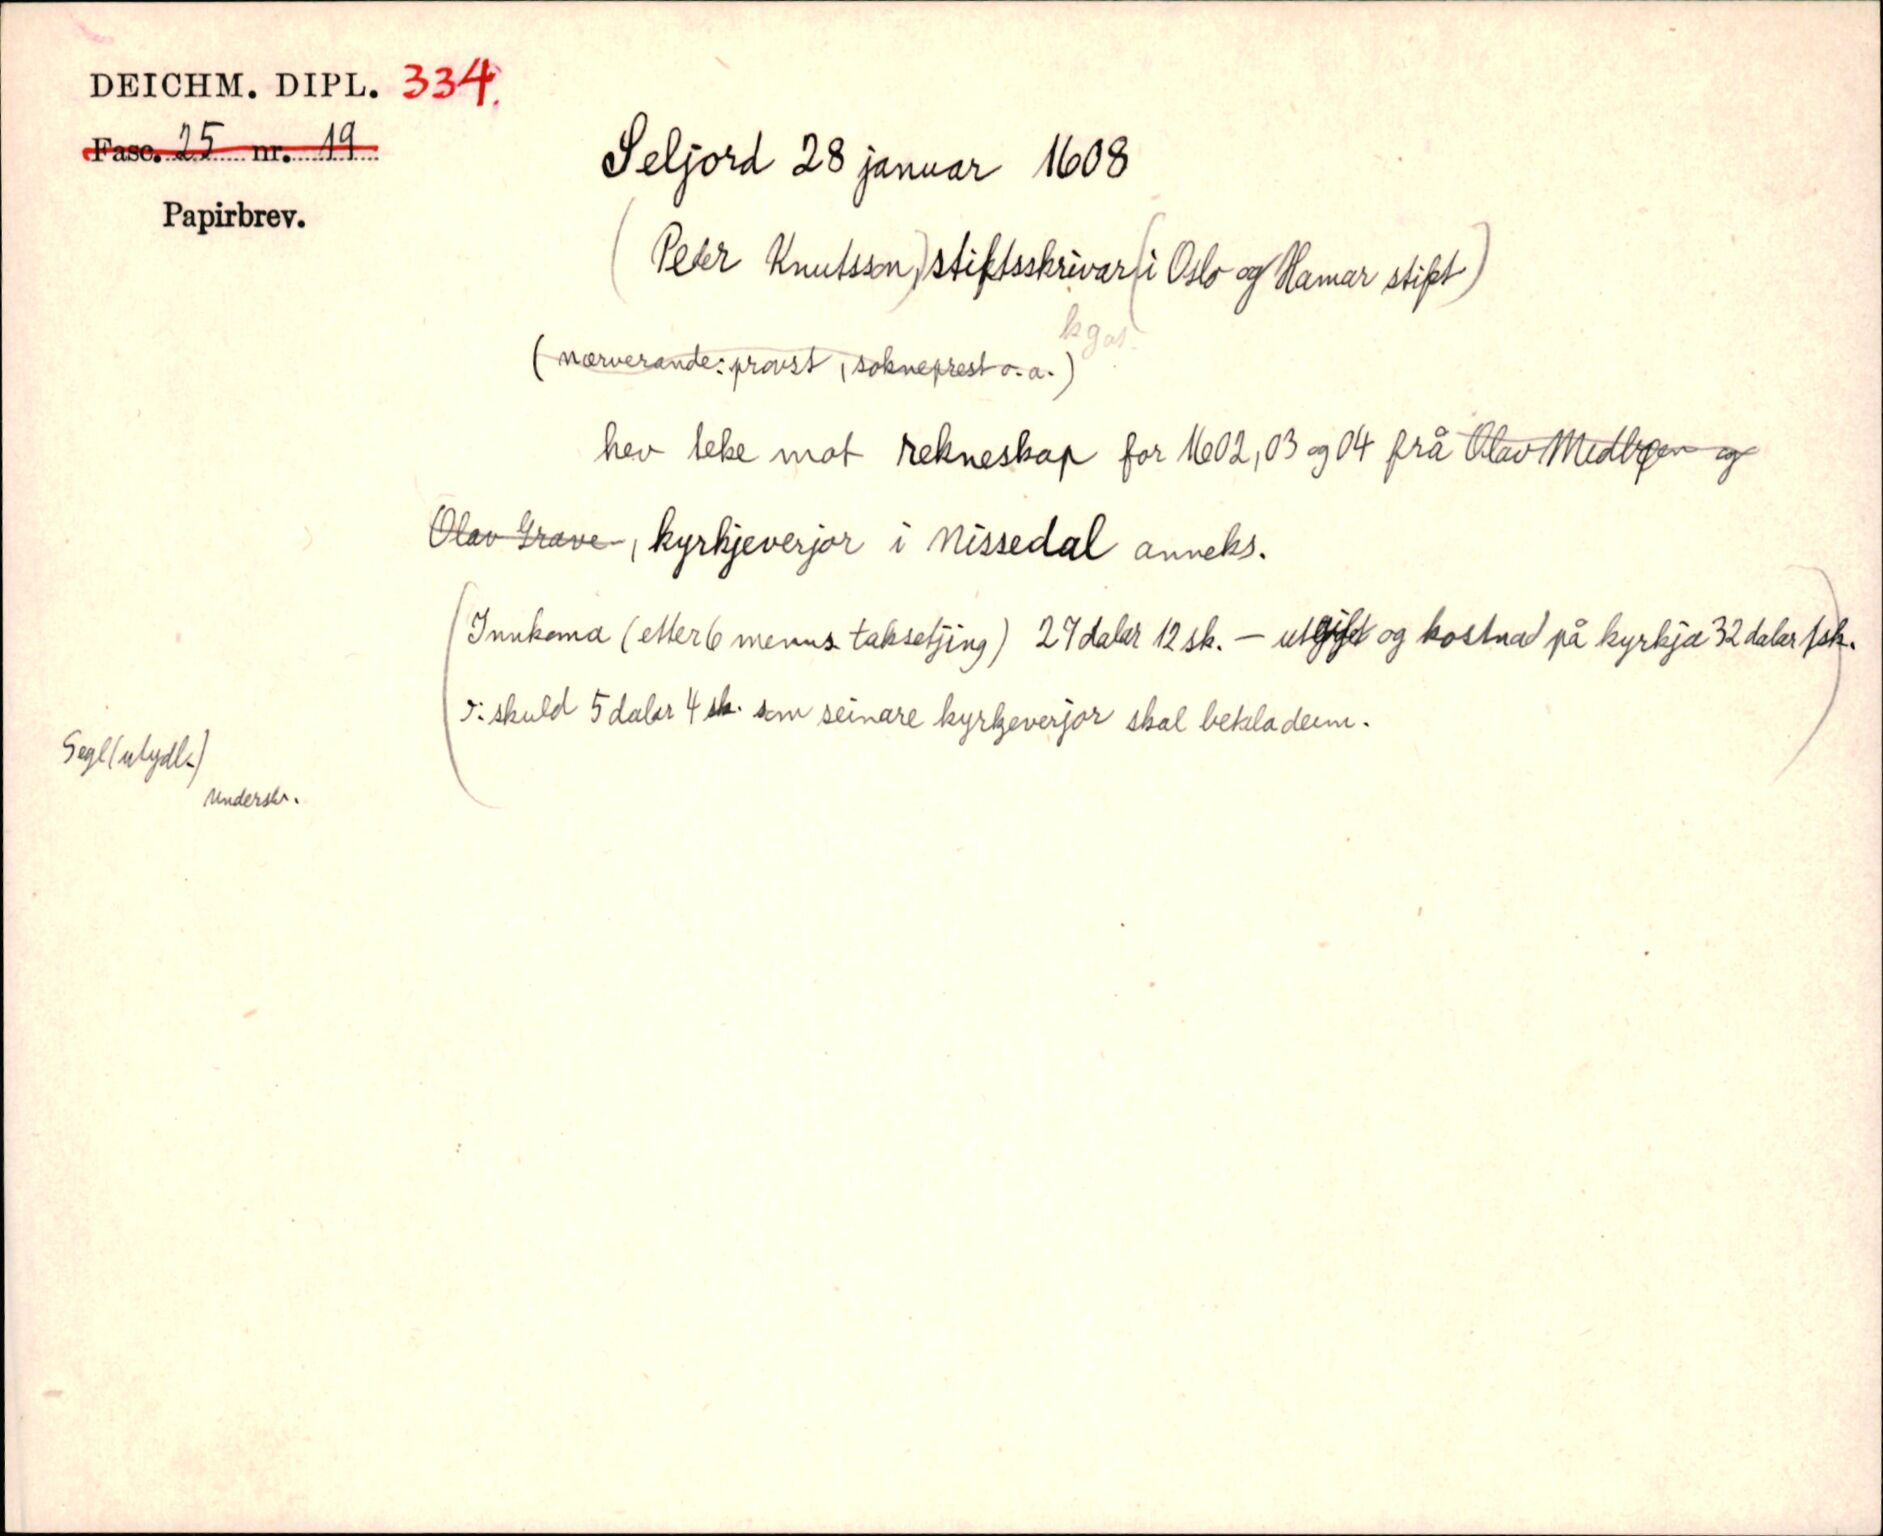 DEICHM. DIPL. 334.
Fasc. 25 nr. 19
Papirbrev.
Seljord 28 januar 1608
(Peder Knutsson,) stiftsskrivar (i Oslo og Hamar stift)
(nærverande: provst, sokneprest o. a.)
hev teke mot rekneskap for 1602, 03 og 04 frå Olav og
Olav Grave, kyrkjeverjor i Nissedal anneks.
(Innkoma (etter 6 menns taksetjing) 27 dalar 12 sk. — utgift og kostnad på kyrkja 32 dalar 1 sk.
ɔ: skuld 5 dalar 4 sk. som seinare kyrkjeverjor skal betala deim.)
Segl (utydl.)
Underskr.